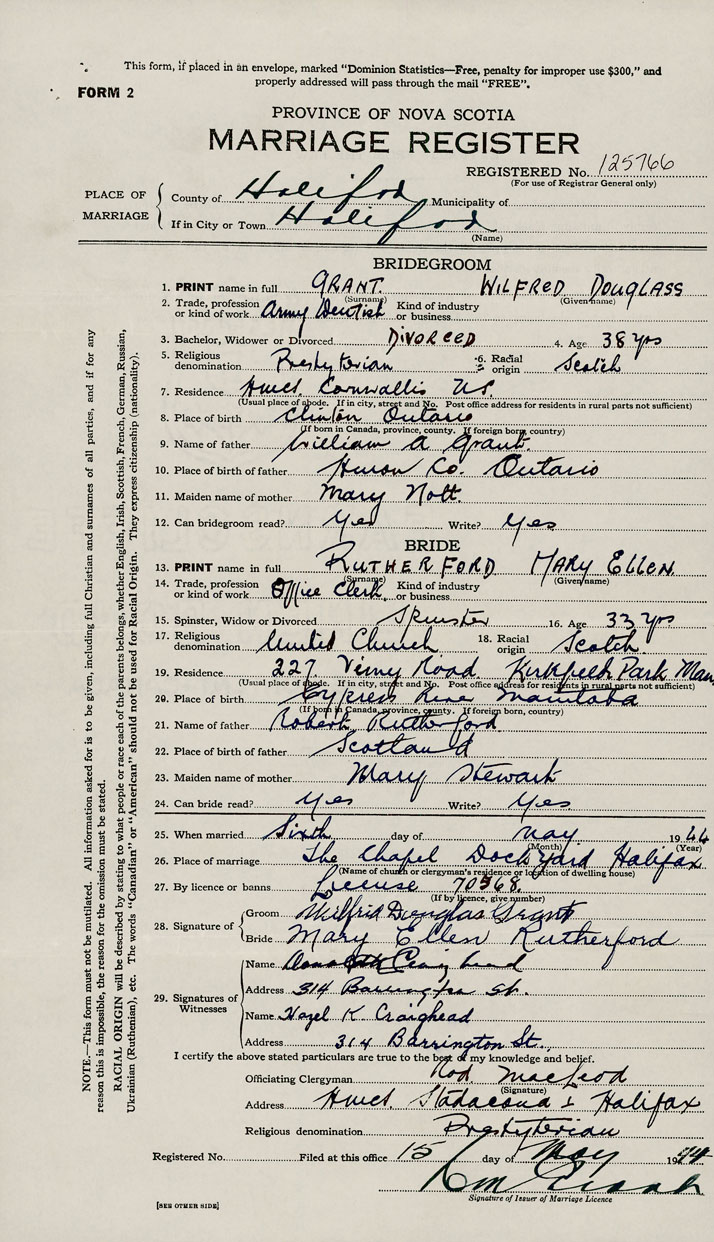 This form, if placed in an envelope, marked "Dominion Statistics—Free, penalty for improper use $300," and
properly addressed will pass through the mail "FREE".
FORM 2
PROVINCE OF NOVA SCOTIA
MARRIAGE REGISTER
REGISTERED No. 125766
(For use of Registrar General only)
PLACE OF MARRIAGE
County of Halifax Municipality of
If in City or Town Halifax
(Name)
BRIDEGROOM
1. PRINT name in full GRANT WILFRED DOUGLASS
(Surname) (Given name)
2. Trade, profession or kind of work Army Dentist Kind of industry or business
3. Bachelor, Widower or Divorced DIVORCED 4. Age 38 yrs
5. Religious denomination Presbyterian 6. Racial origin Scotch
7. Residence HMCS Cornwallis NS
(Usual place of abode. If in city, street and No. Post office address for residents in rural parts not sufficient)
8. Place of birth Clinton Ontario
(If born in Canada, province, county. If foreign born, country)
9. Name of father William A Grant
10. Place of birth of father Huron Co. Ontario
11. Maiden name of mother Mary Nott
12. Can bridegroom read? Yes Write? Yes
BRIDE
13. PRINT name in full RUTHERFORD MARY ELLEN
(Surname) (Given name)
14. Trade, profession or kind of work Office Clerk Kind of industry or business
15. Spinster, Widow or Divorced Spinster 16. Age 33 yrs
17. Religious denomination United Church 18. Racial origin Scotch
19. Residence 227 Vimy Road Kirkfield Park Man
(Usual place of abode. If in city, street and No. Post office address for residents in rural parts not sufficient)
20. Place of birth Cypress River Manitoba
(If born in Canada, province, county. If foreign born, country)
21. Name of father Robert Rutherford
22. Place of birth of father Scotland
23. Maiden name of mother Mary Stewart
24. Can bride read? Yes Write? Yes
25. When married Sixth day of May 1944
(Month) (Year)
26. Place of marriage The Chapel Dockyard Halifax
(Name of church or clergyman's residence or location of dwelling house)
27. By licence or banns License 70568
(If by licence, give number)
28. Signature of
Groom Wilfrid Douglas Grant
Bride Mary Ellen Rutherford
29. Signatures of Witnesses
Name Craighead
Address 314 Barrington St.
Name Hazel K Craighead
Address 314 Barrington St.
I certify the above stated particulars are true to the best of my knowledge and belief.
Officiating Clergyman Rod MacLeod
(Signature)
Address HMCS Stadacona Halifax
Religious denomination Presbyterian
Registered No. Filed at this office 15 day of May 1944
Signature of Issuer of Marriage Licence
[SEE OTHER SIDE]
NOTE.—This form must not be mutilated. All information asked for is to be given, including full Christian and surnames of all parties, and if for any
reason this is impossible, the reason for the omission must be stated.
RACIAL ORIGIN will be described by stating to what people or race each of the parents belongs, whether English, Irish, Scottish, French, German, Russian,
Ukrainian (Ruthenian), etc. The words "Canadian" or "American" should not be used for Racial Origin. They express citizenship (nationality).